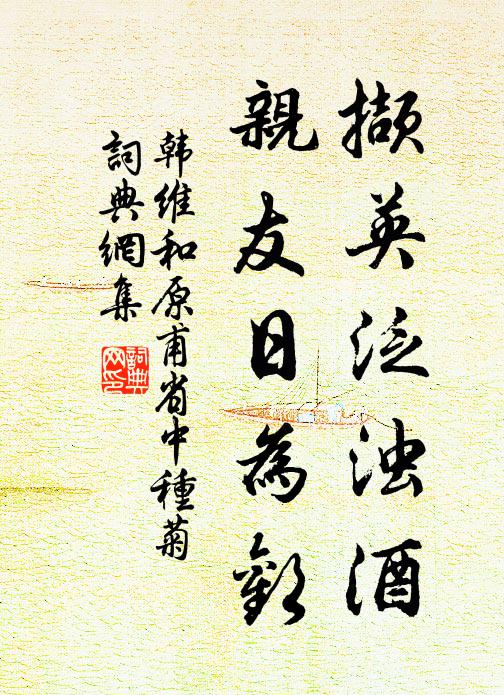 撷英泛浊酒
親友日為歡
韩維和原甫省中種菊
詞典網集
詞典网印